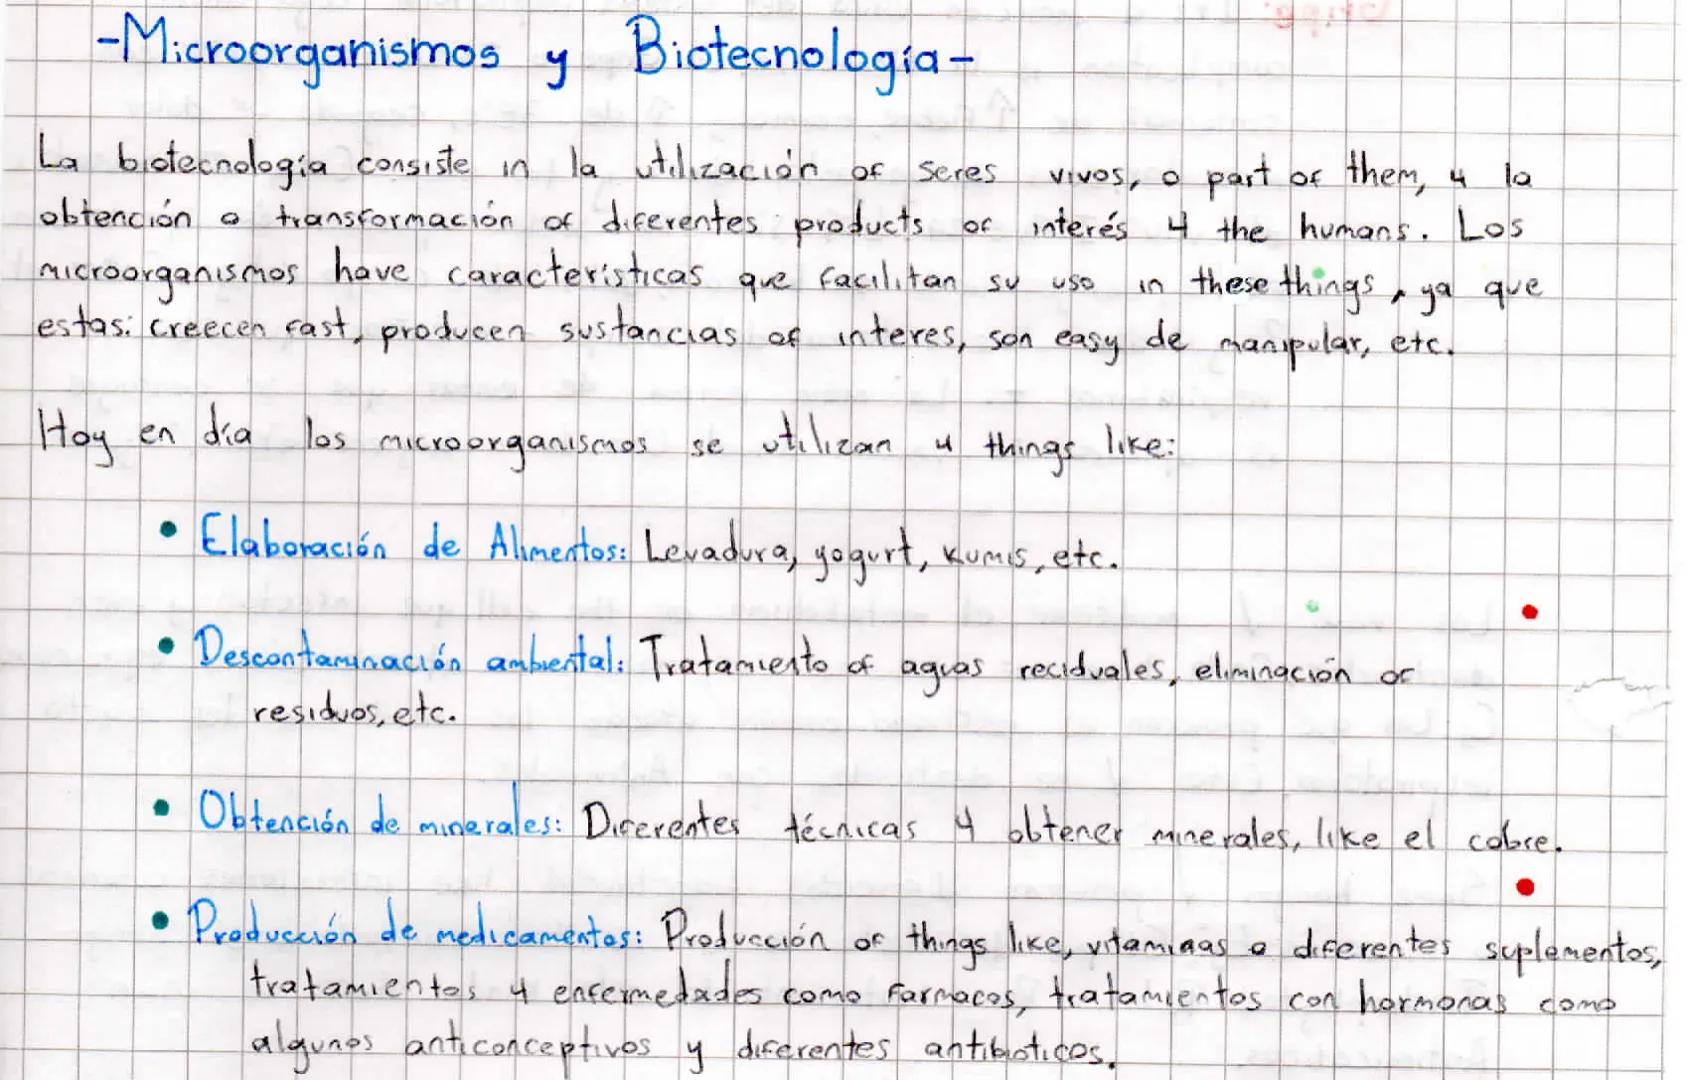 -Microorganismos y Biotecnología-
La biotecnología consiste in la utilización of seres vivos, o part of them, 4 la
obtención o transformación of diferentes products of interés 4 the humans. Los
microorganismos have características que facilitan su uso in these things, ya que
estas: creecen fast, producen sustancias of interes, son easy de manipular, etc.
Hoy en día los microorganismos se utilizan 4 things like:
• Elaboración de Alimentos: Levadura, yogurt, kumis, etc.
• Descontaminación ambiental: Tratamiento of aguas reciduales, eliminación of
residuos, etc.
• Obtención de minerales: Diferentes técnicas 4 obtener minerales, like el cobre.
• Producción de medicamentos: Producción of things like, vitaminas o diferentes suplementos,
tratamientos 4 enfermedades como farmacos, tratamientos con hormonas como
algunos anticonceptivos y diferentes antibioticos.